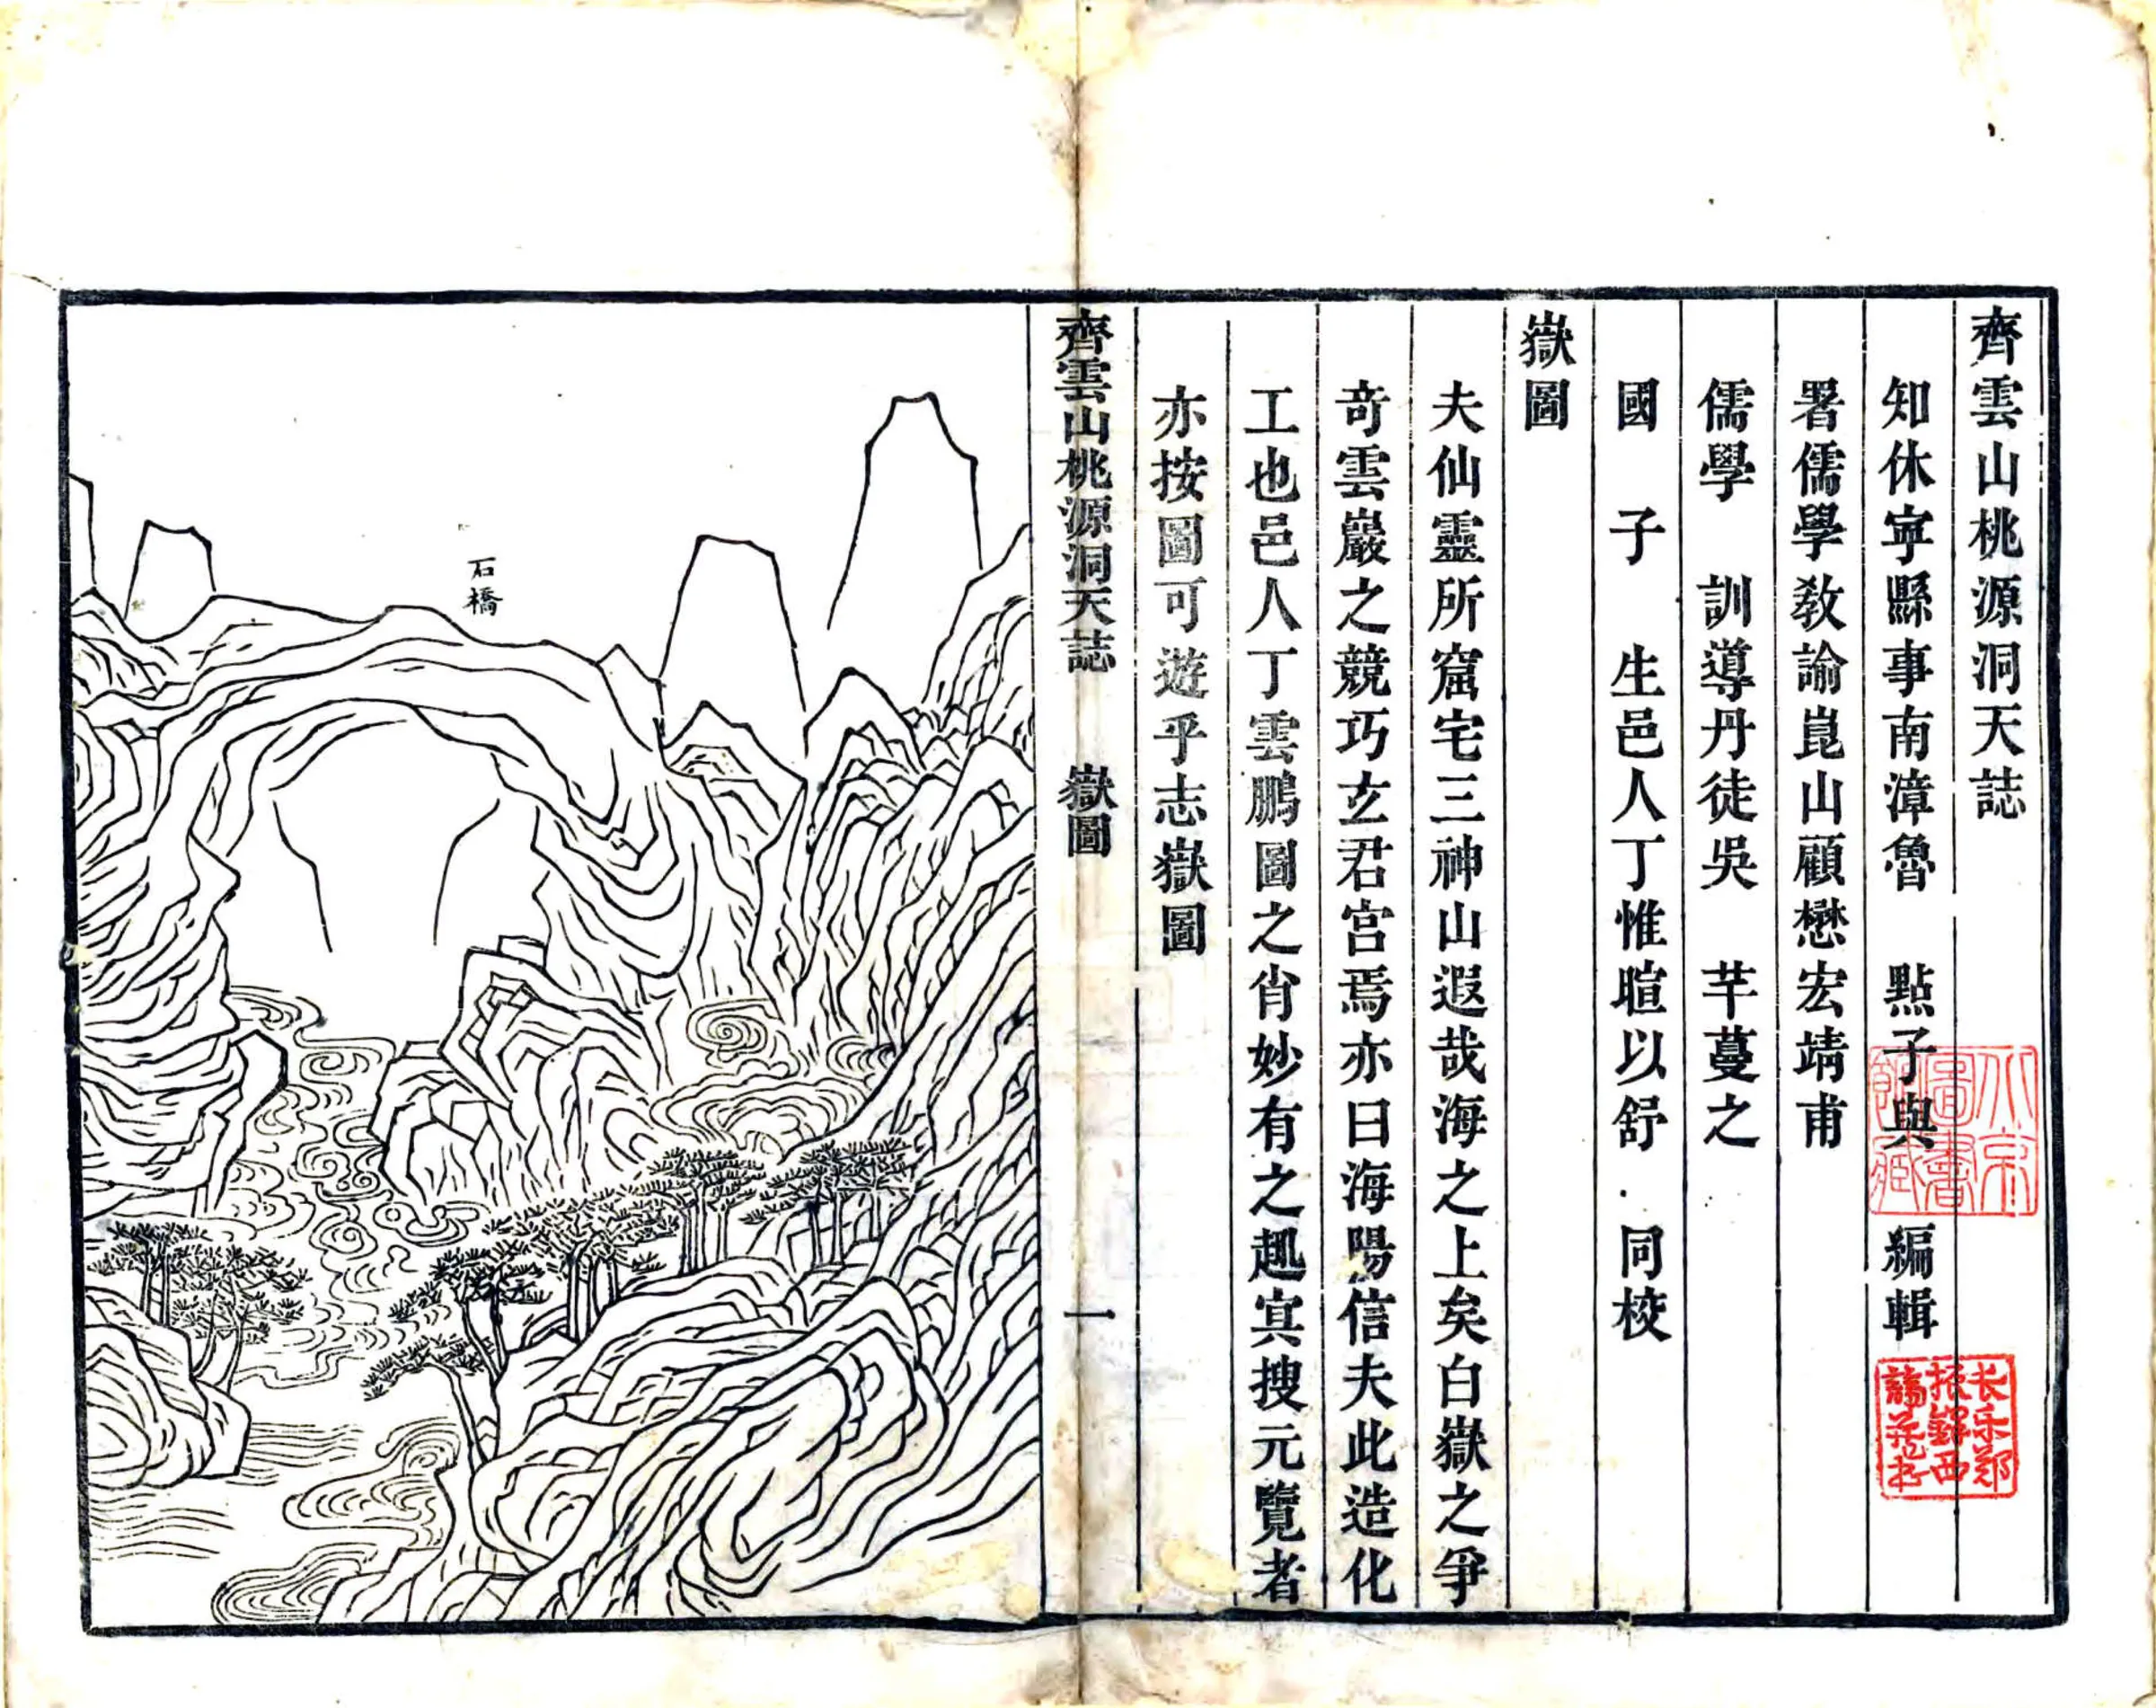 齊雲山桃源洞天誌
知休寧縣事南漳魯 點子與 編輯
署儒學教諭崑山顧懋宏靖甫
儒學 訓導丹徒吳 芊蔓之
國 子 生邑人丁惟暄以舒 同校
嶽圖
夫仙靈所窟宅三神山遐哉海之上矣白嶽之爭
奇雲巖之競巧玄君宮焉亦曰海陽信夫此造化
工也邑人丁雲鵬圖之肖妙有之趣㝠搜元覽者
亦按圖可遊乎志嶽圖
齊雲山桃源洞天誌 嶽圖 一
石橋
北京圖書館藏
长乐郑振鐸西諦藏书